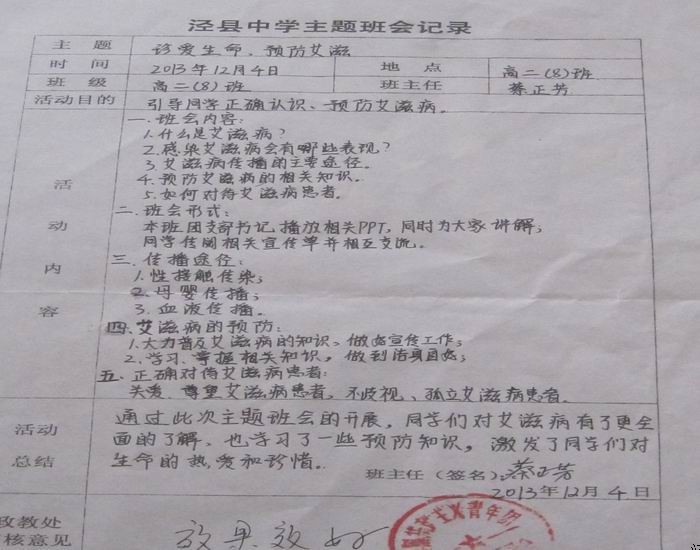 泾县中学主题班会记录
主题 珍爱生命、预防艾滋
时间 2013年12月4日 地点 高二(8)班
班级 高二(8)班 班主任 蔡正芳
活动目的 引导同学正确认识、预防艾滋病。
活动内容
一.班会内容:
1.什么是艾滋病?
2.感染艾滋病会有哪些表现?
3.艾滋病传播的主要途径。
4.预防艾滋病的相关知识。
5.如何对待艾滋病患者。
二.班会形式:
本班团支部书记播放相关PPT,同时为大家讲解;
同学传阅相关宣传单并相互交流。
三.传播途径:
1.性接触传染;
2.母婴传播;
3.血液传播.
四.艾滋病的预防:
1.大力普及艾滋病的知识、做好宣传工作;
2.学习、掌握相关知识,做到洁身自好;
五.正确对待艾滋病患者:
关爱、尊重艾滋病患者,不歧视、孤立艾滋病患者。
活动总结
通过此次主题班会的开展,同学们对艾滋病有了更全
面的了解,也学习了一些预防知识,激发了同学们对
生命的热爱和珍惜。
班主任(签名):蔡正芳
2013年12月4日
政教处
核意见
效果效好
主义青年团